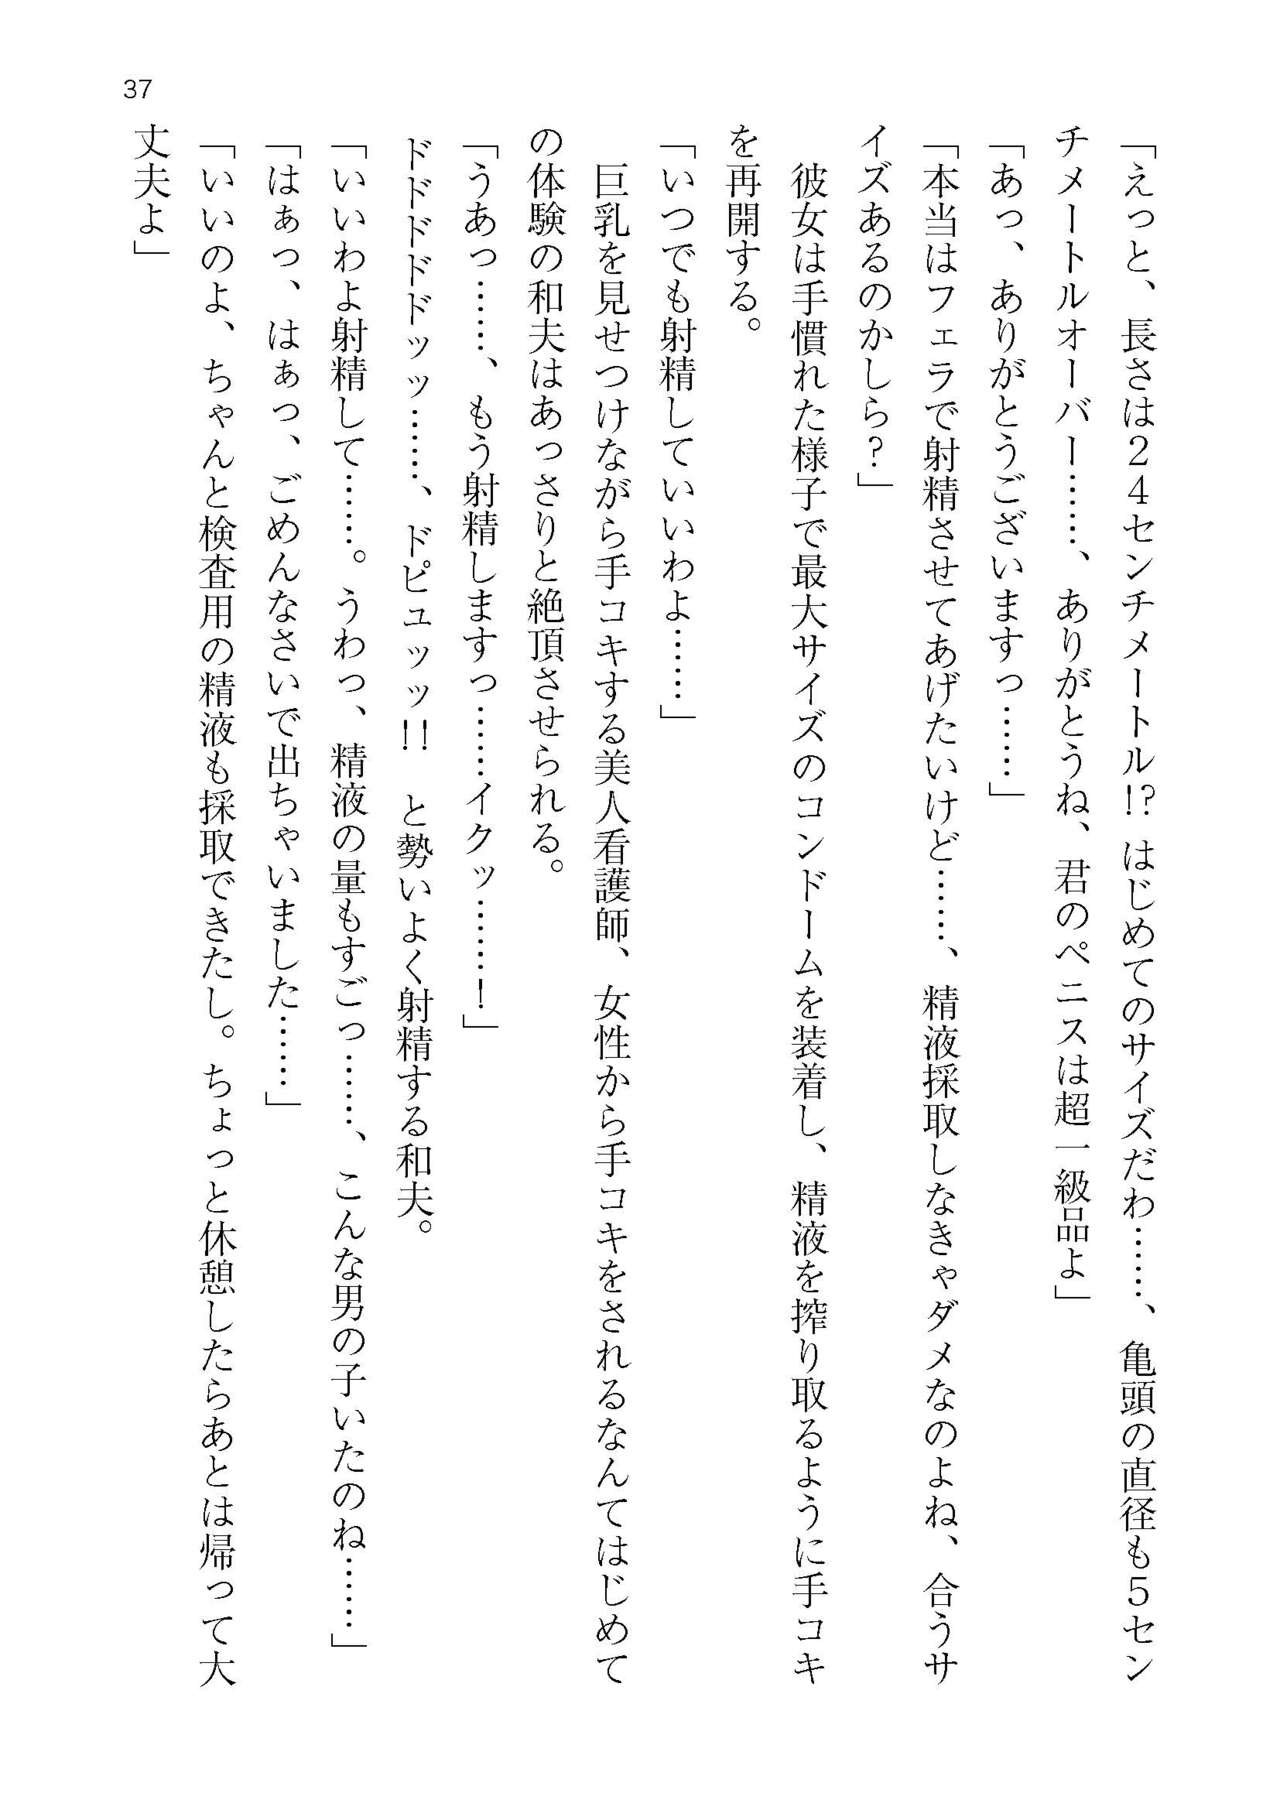 37
「えっと、長さは24センチメートル!? はじめてのサイズだわ……、亀頭の直径も5セン
チメートルオーバー……、ありがとうね、君のペニスは超一級品よ」
「あっ、ありがとうございますっ……」
「本当はフェラで射精させてあげたいけど……、精液採取しなきゃダメなのよね、合うサ
イズあるのかしら?」
　彼女は手慣れた様子で最大サイズのコンドームを装着し、精液を搾り取るように手コキ
を再開する。
「いつでも射精していいわよ……」
　巨乳を見せつけながら手コキする美人看護師、女性から手コキをされるなんてはじめて
の体験の和夫はあっさりと絶頂させられる。
「うあっ……、もう射精しますっ……イクッ……!」
ドドドドドッッ……、ドピュッッ!!　と勢いよく射精する和夫。
「いいわよ射精して……。うわっ、精液の量もすごっ……、こんな男の子いたのね……」
「はぁっ、はぁっ、ごめんなさいで出ちゃいました……」
「いいのよ、ちゃんと検査用の精液も採取できたし。ちょっと休憩したらあとは帰って大
丈夫よ」